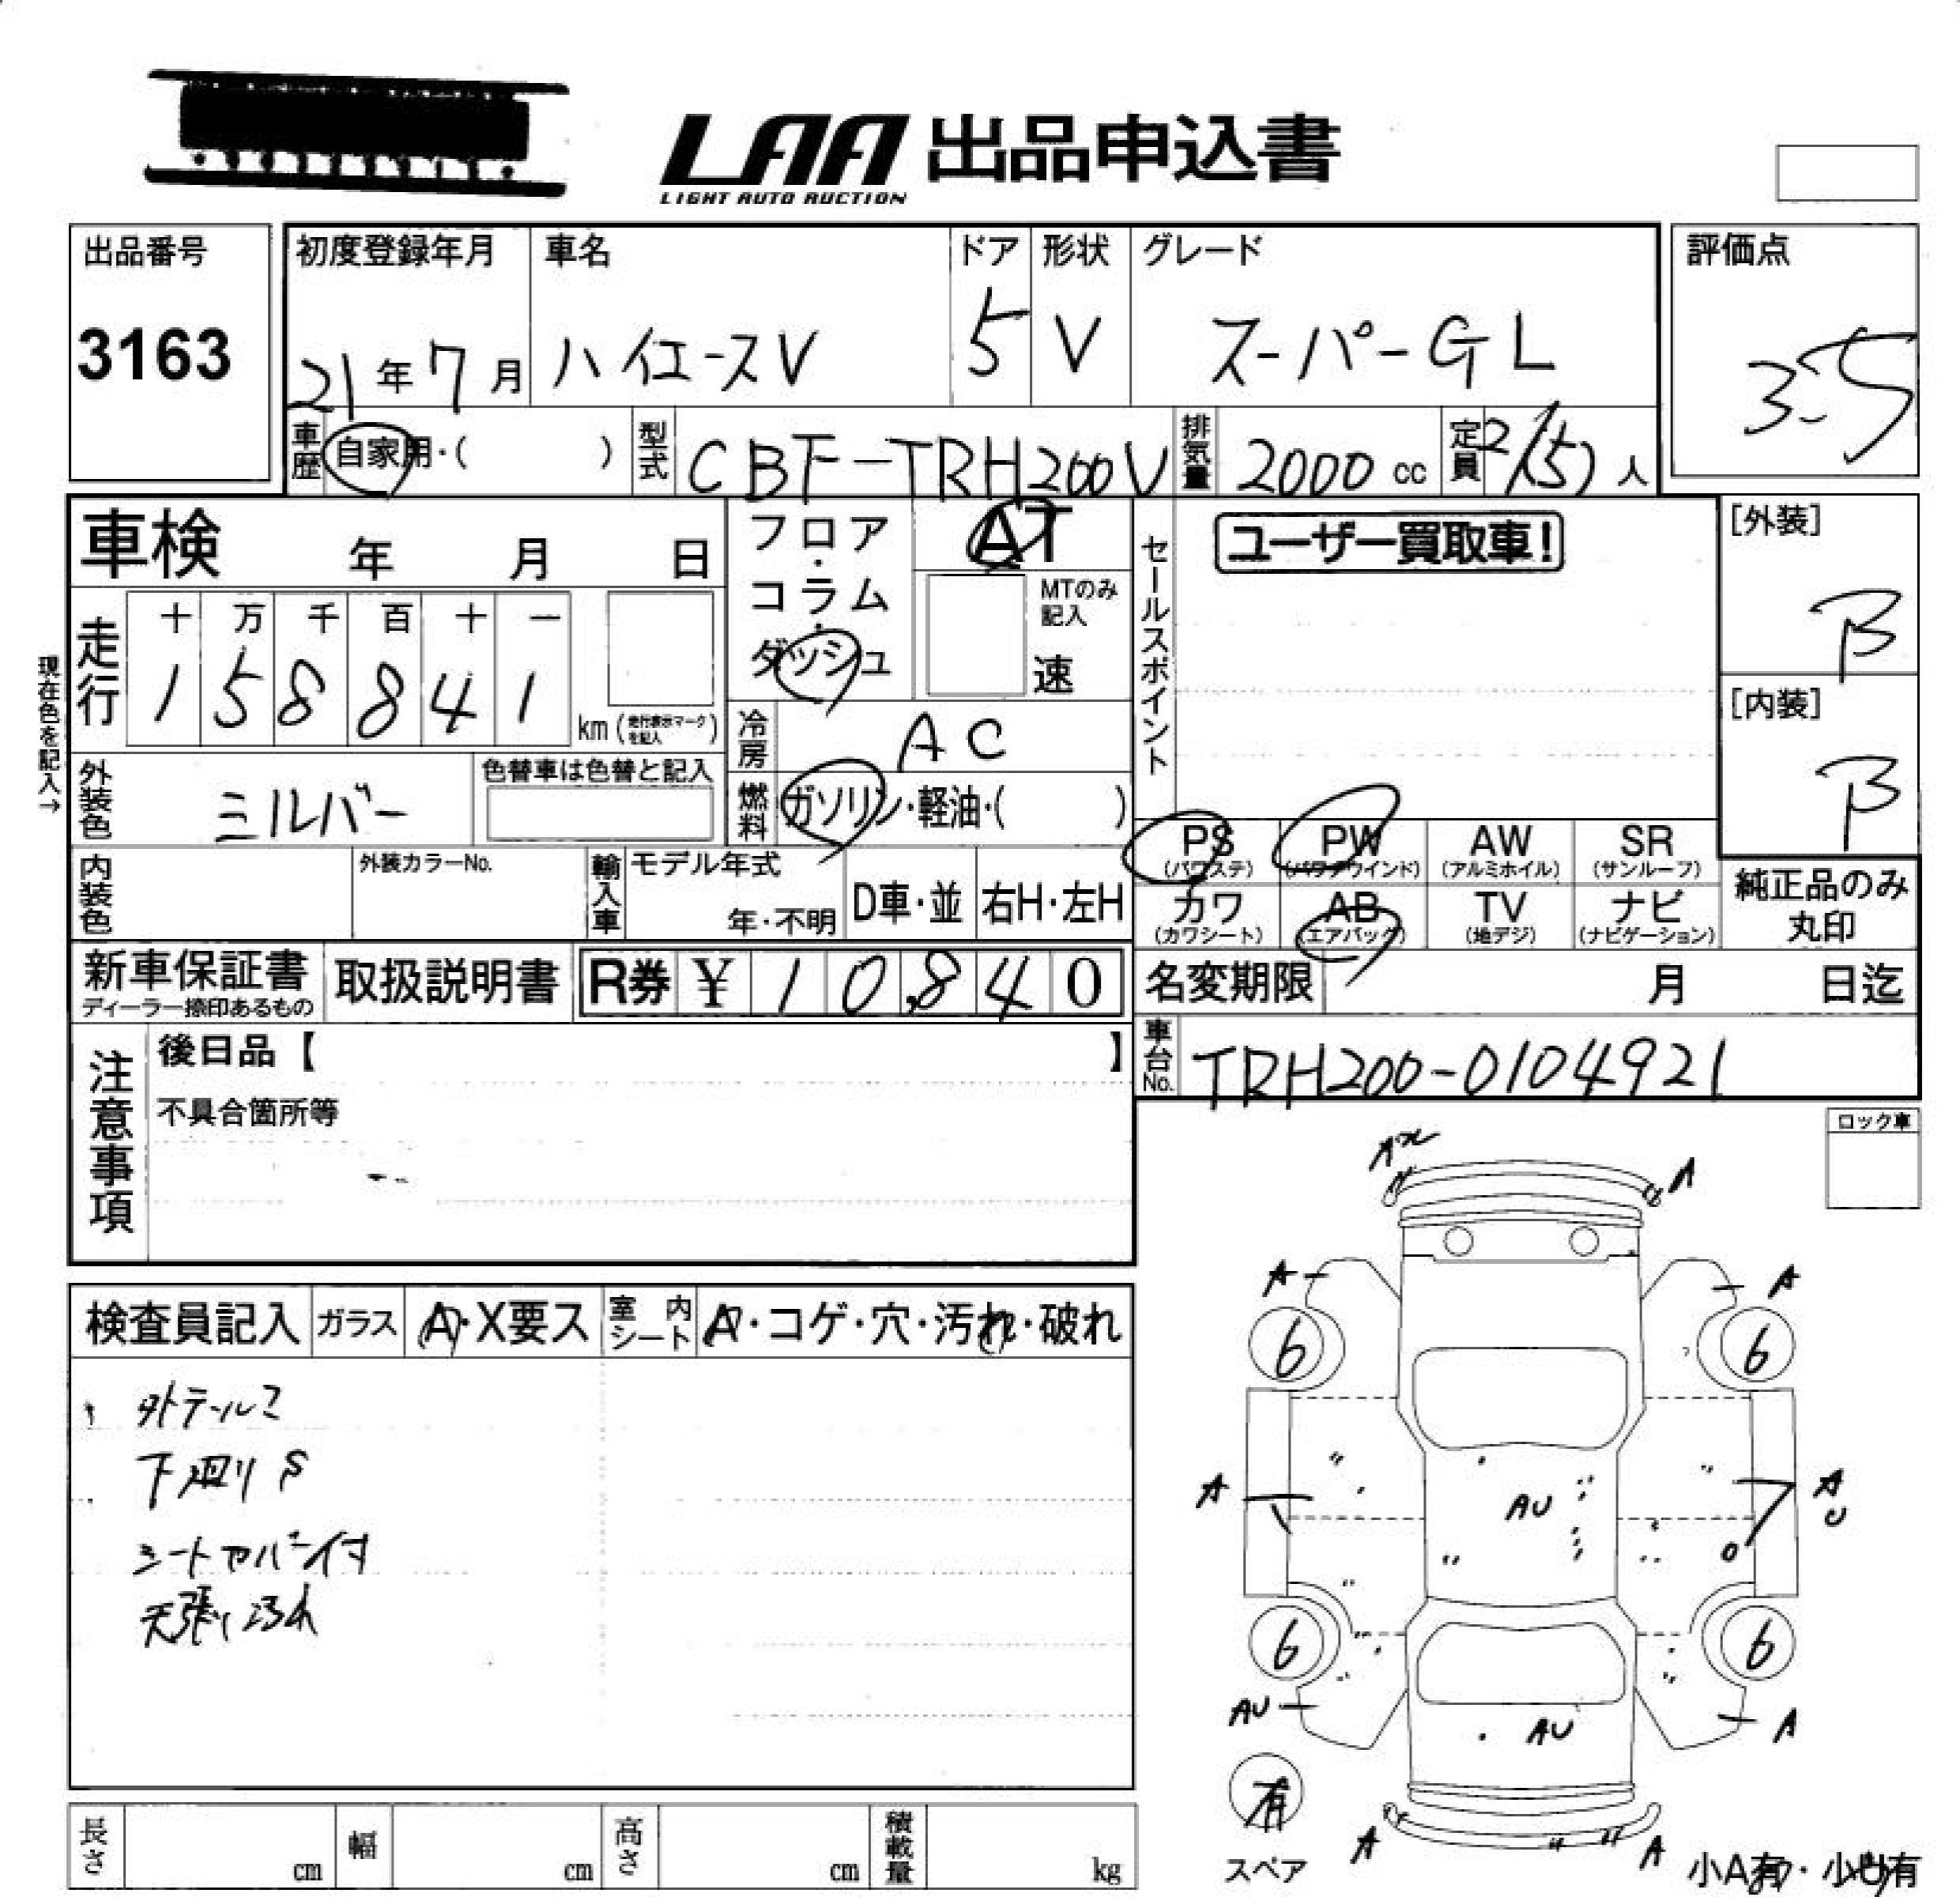 LAA 出品申込書
LIGHT AUTO AUCTION
出品番号
3163
初度登録年月
21年7月
車名
ハイエースV
ドア
5
形状
V
グレード
スーパーGL
評価点
3.5
車歴 自家用・( )
型式 CBF-TRH200V
排気量 2000cc
定員 2/(5)人
車検 年 月 日
フロア・コラム・ダッシュ
AT
MTのみ記入
速
セールスポイント
ユーザー買取車!
[外装]
B
[内装]
B
現在色を記入→
走行
十 万 千 百 十 一
1 5 8 8 4 1
km (走行表示マークを記入)
冷房 AC
外装色 シルバー
色替車は色替と記入
燃料 ガソリン・軽油・( )
PS (パワステ) PW (パワーウインド) AW (アルミホイル) SR (サンルーフ)
カワ (カワシート) AB (エアバック) TV (地デジ) ナビ (ナビゲーション)
純正品のみ丸印
内装色
外装カラーNo.
輸入車 モデル年式
年・不明
D車・並
右H・左H
新車保証書
ディーラー捺印あるもの
取扱説明書
R券 ¥ 10,840
名変期限 月 日迄
車台No. TRH200-0104921
注意事項
後日品【 】
不具合箇所等
ロック車
検査員記入 ガラス A・X要ス 室内シート A・コゲ・穴・汚れ・破れ
下廻りS
シートカバー付
天張り汚れ
A
A
A
6
6
A
AU
A
U
6
6
AU
AU
A
有
スペア
A
A
小A有・小U有
長さ cm
幅 cm
高さ cm
積載量 kg